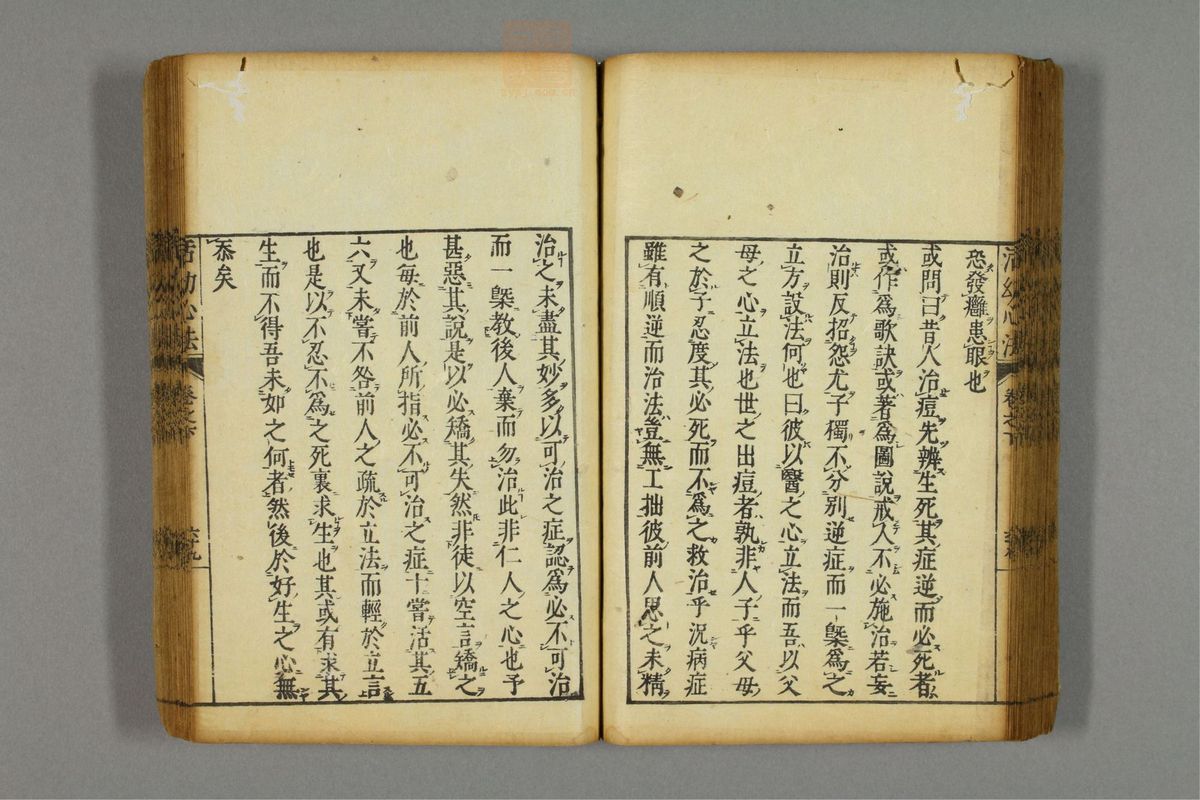 活幼心法
卷之下
恐發癰患眼也
或問曰昔人治痘先辨生死其症逆而必死者
或作爲歌訣或著爲圖說戒人不必施治若妄
治則反招怨尤子獨不分別逆症而一槩爲之
立方設法何也曰彼以醫之心立法而吾以父
母之心立法也世之出痘者孰非人子乎父母
之於子忍度其必死而不爲之救治乎況病症
雖有順逆而治法豈無工拙彼前人思之未精
治之未盡其妙多以可治之症認爲必不可治
而一槩教後人棄而勿治此非仁人之心也予
甚惡其說是以必矯其失然非徒以空言矯之
也每於前人所指必不可治之症十嘗活其五
六又未嘗不咎前人之疏於立法而輕於立言
也是以不忍不爲之死裏求生也其或有求其
生而不得吾未如之何者然後於好生之心無
忝矣
活幼心法
卷之下
六九